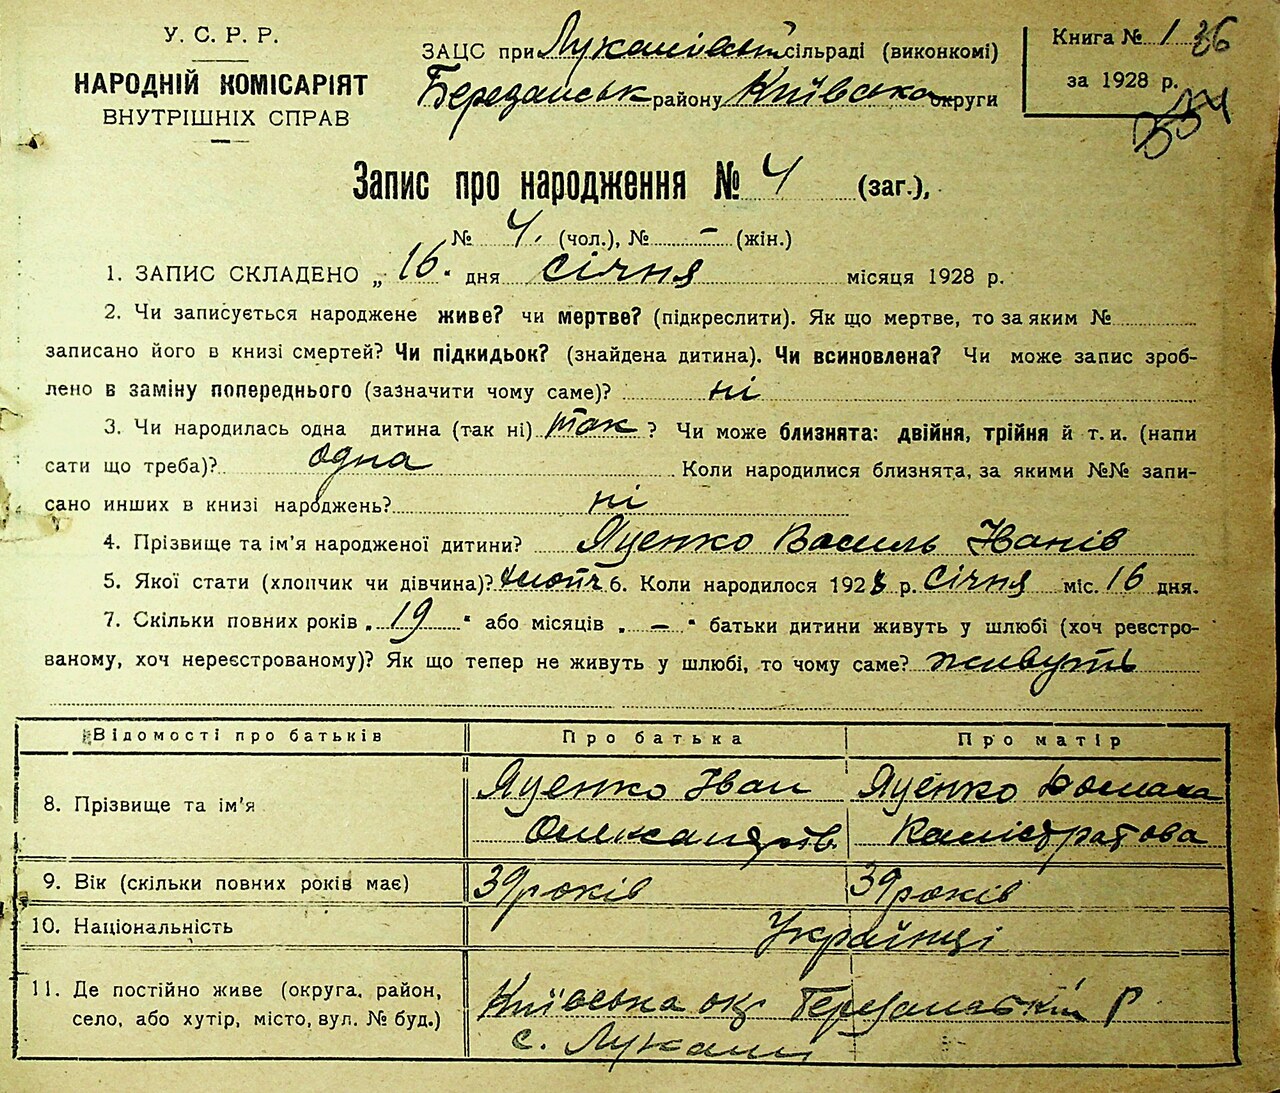 У. С. Р. Р.
НАРОДНІЙ КОМІСАРІЯТ
ВНУТРІШНІХ СПРАВ
ЗАЦС при Лукашівській сільраді (виконкомі)
Березанськ району Київська округи
Книга № 1 36
за 1928 р.
Запис про народження № 4 (заг.),
№ 4. (чол.), № - (жін.)
1. ЗАПИС СКЛАДЕНО „ 16. " дня січня місяця 1928 р.
2. Чи записується народжене живе? чи мертве? (підкреслити). Як що мертве, то за яким №
записано його в книзі смертей? Чи підкидьок? (знайдена дитина). Чи всиновлена? Чи може запис зроб-
лено в заміну попереднього (зазначити чому саме)? ні
3. Чи народилась одна дитина (так ні) так ? Чи може близнята: двійня, трійня й т. и. (напи
сати що треба)? одна Коли народилися близнята, за якими №№ запи-
сано инших в книзі народжень? ні
4. Прізвище та ім'я народженої дитини? Яценко Василь Іванів
5. Якої стати (хлопчик чи дівчина)? хлопч 6. Коли народилося 1928 р. січня міс. 16 дня.
7. Скільки повних років „ 19 " або місяців „ - " батьки дитини живуть у шлюбі (хоч реєстро-
ваному, хоч нереєстрованому)? Як що тепер не живуть у шлюбі, то чому саме? живуть
Відомості про батьків Про батька Про матір
8. Прізвище та ім'я Яценко Іван Яценко Домаха
Олександрів Калістратова
9. Вік (скільки повних років має) 39 років 39 років
10. Національність Українці
11. Де постійно живе (округа, район,
село, або хутір, місто, вул. № буд.) Київська окр Березанський р
с. Лукаші